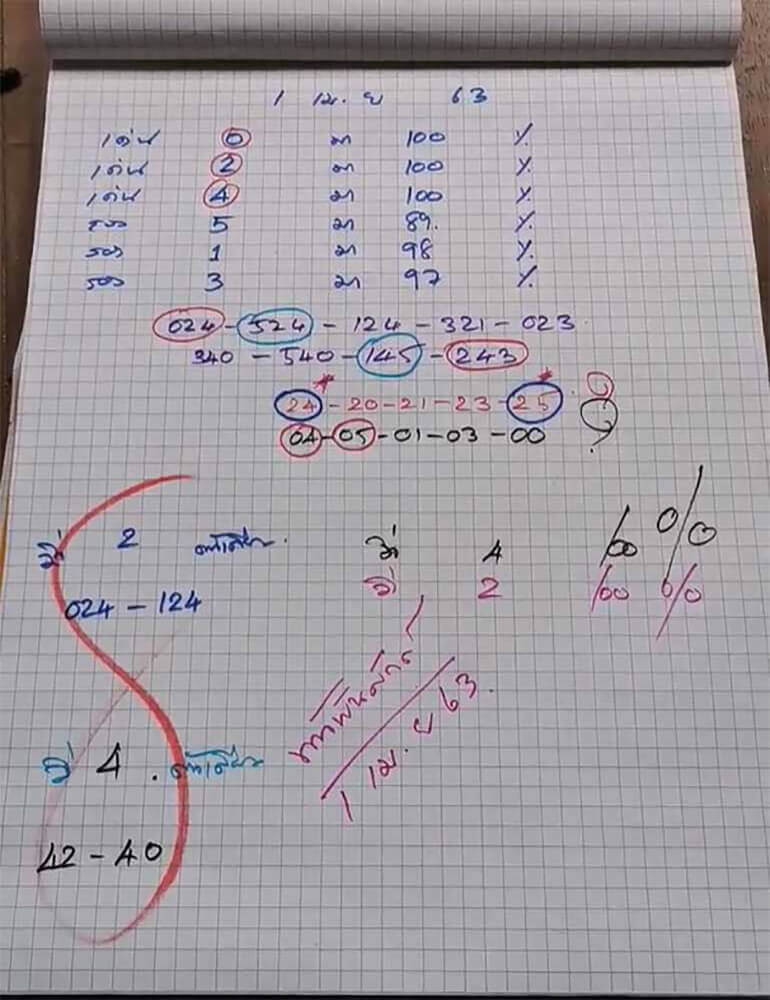 1 เม.ย 63
เด่น 0 มา 100 %
เด่น 2 มา 100 %
เด่น 4 มา 100 %
รอง 5 มา 89. %
รอง 1 มา 98 %
รอง 3 มา 97 %
024 - 524 - 124 - 321 - 023
340 - 540 - 145 - 243
24 - 20 - 21 - 23 - 25
04 - 05 - 01 - 03 - 00
วิ่ 2 ตัวเดียว.
024 - 124
วิ่ 4 100 %
วิ่ 2 100 %
1 เม. ย 63.
วิ่ 4 . ตัวเดียว
42 - 40